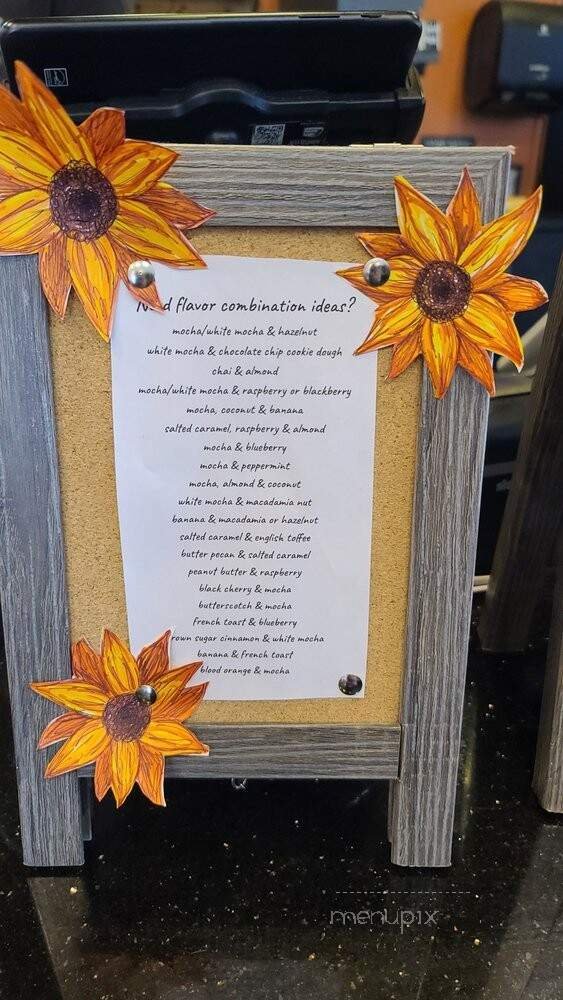 Need flavor combination ideas?
mocha/white mocha & hazelnut
white mocha & chocolate chip cookie dough
chai & almond
mocha/white mocha & raspberry or blackberry
mocha, coconut & banana
salted caramel, raspberry & almond
mocha & blueberry
mocha & peppermint
mocha, almond & coconut
white mocha & macadamia nut
banana & macadamia or hazelnut
salted caramel & english toffee
butter pecan & salted caramel
peanut butter & raspberry
black cherry & mocha
butterscotch & mocha
french toast & blueberry
brown sugar cinnamon & white mocha
banana & french toast
blood orange & mocha
menupix